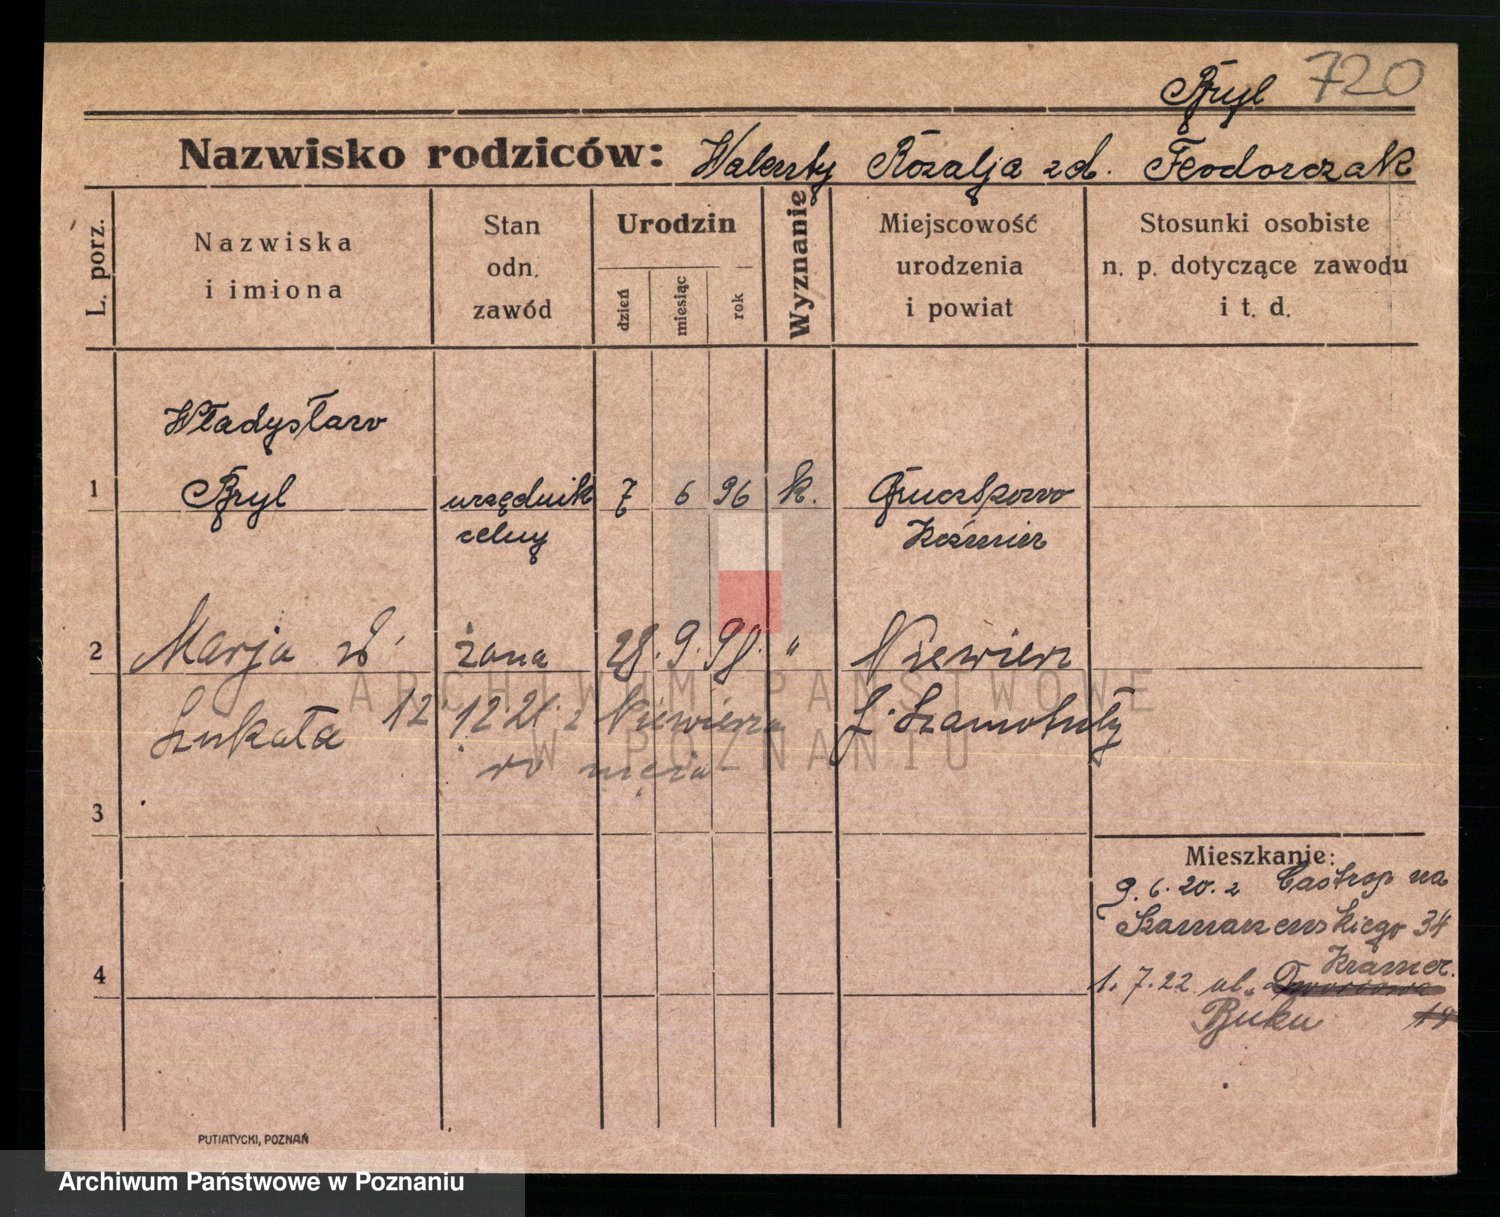 Bryl 720
Nazwisko rodziców: Walenty Rozalja zd. Feodorczak
L. porz.
Nazwiska
i imiona
Stan
odn.
zawód
Urodzin
dzień
miesiąc
rok
Wyznanie
Miejscowość
urodzenia
i powiat
Stosunki osobiste
n. p. dotyczące zawodu
i t. d.
Władysław
1 Bryl urzędnik 7 6 96 k.
celny
2 Marja żona 28. 9. 98. " Niewierz
12 12 21. z Niewierza Szamotuły
3
Mieszkanie:
9. 6. 20. z Castrop na
34
4
Kramer.
1. 7. 22 ul. Dworcowa
Buku 18
ARCHIWUM PAŃSTWOWE
W POZNANIU
PUTIATYCKI, POZNAŃ
Archiwum Państwowe w Poznaniu